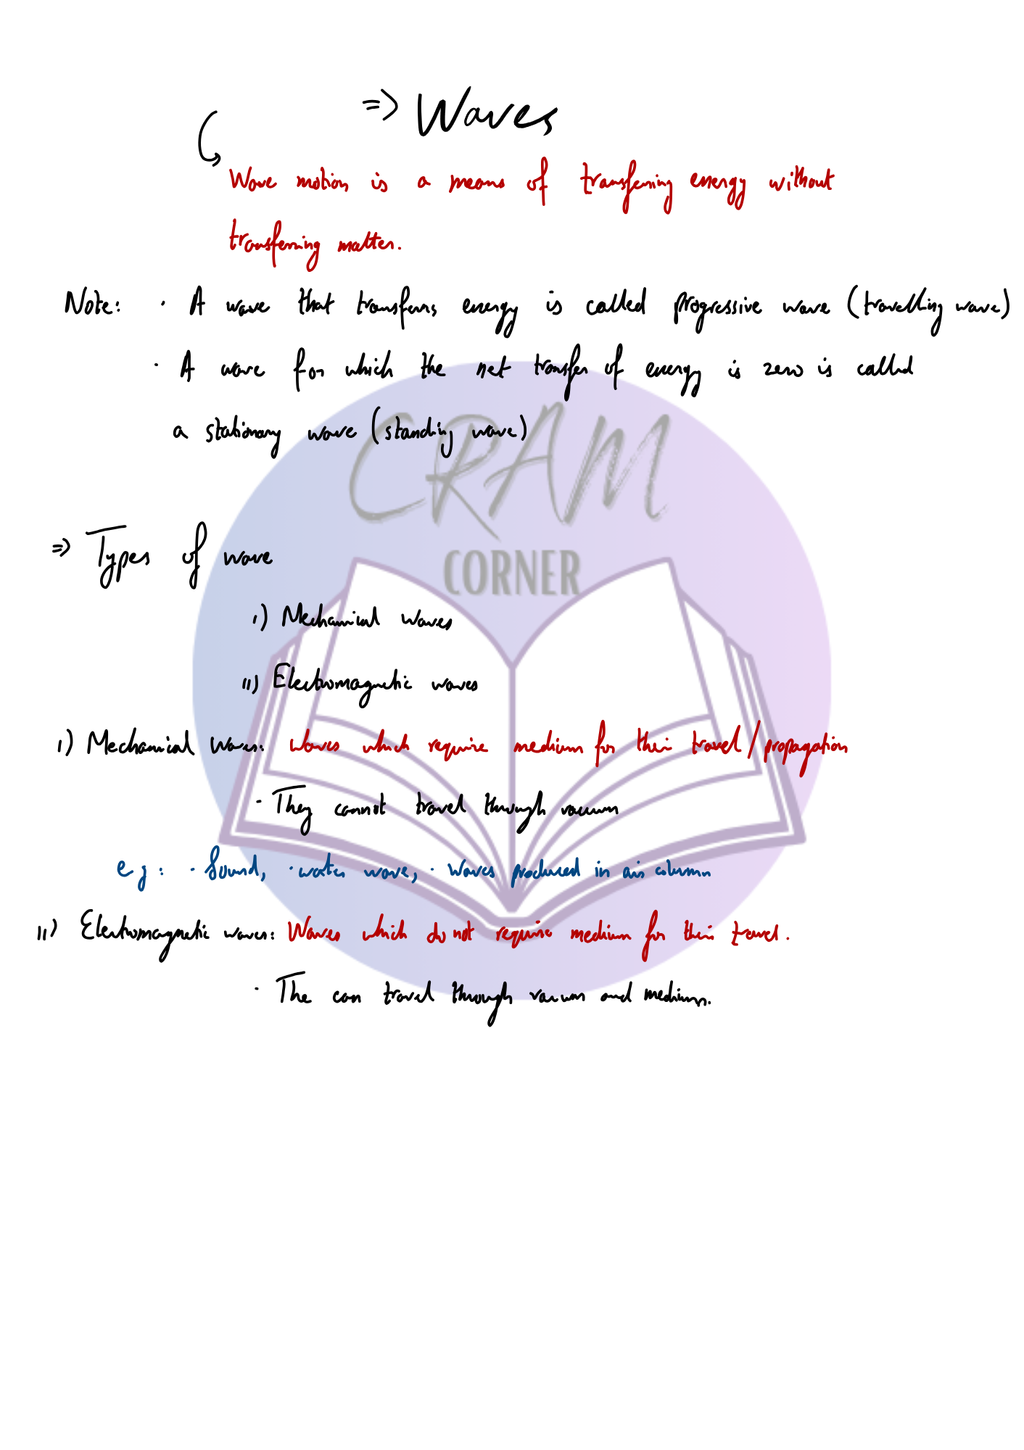 ⇒ Waves
Wave motion is a means of transferring energy without
transferring matter.
Note: · A wave that transfers energy is called progressive wave (travelling wave)
· A wave for which the net transfer of energy is zero is called
a stationary wave (standing wave)
CRAM
CORNER
⇒ Types of wave
i) Mechanical Waves
ii) Electromagnetic waves
i) Mechanical Waves: Waves which require medium for their travel/propagation
· They cannot travel through vacuum
e.g: · Sound, · water wave, · Waves produced in air column
ii) Electromagnetic waves: Waves which do not require medium for their travel.
· The can travel through vacuum and medium.